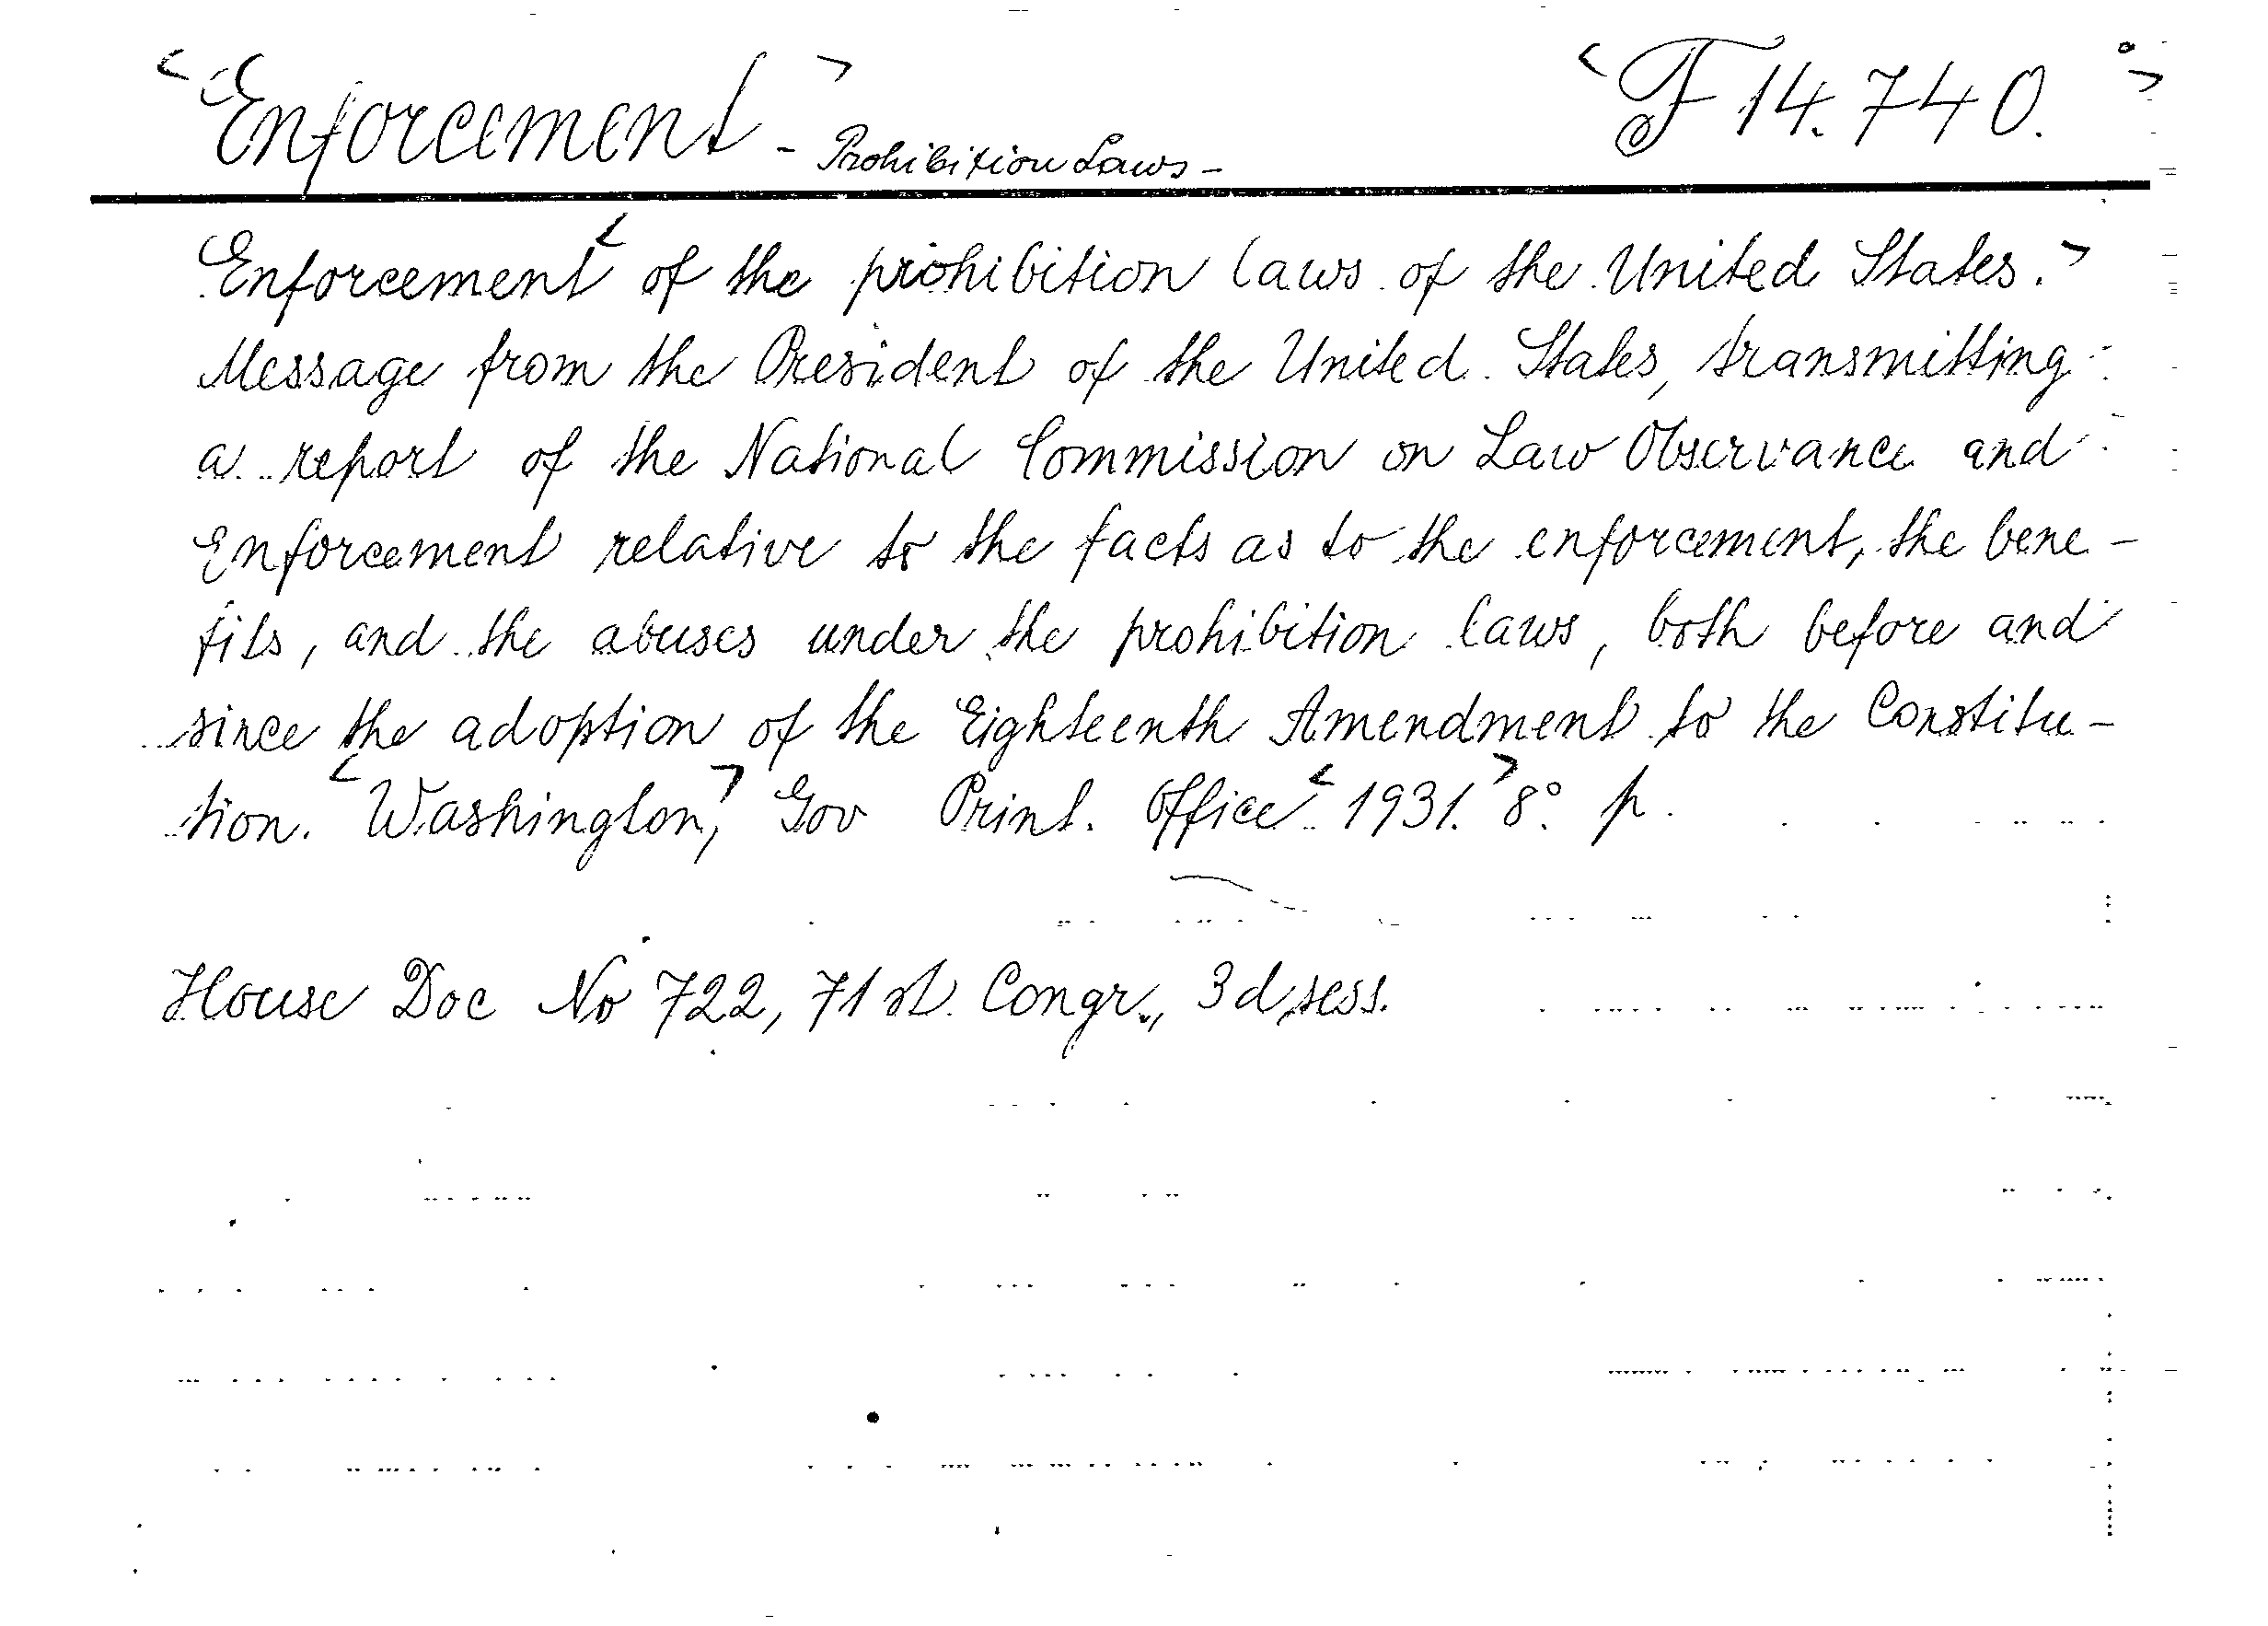 <Enforcement> - Prohibition Laws - <F 14.740.°>
Enforcement< of the prohibition laws of the United States.>
Message from the President of the United States, transmitting
a report of the National Commission on Law Observance and
Enforcement relative to the facts as to the enforcement, the bene-
fits, and the abuses under the prohibition laws, both before and
since the adoption of the Eighteenth Amendment to the Constitu-
tion. <Washington,> Gov Print. Office <1931.> 8°. p.
House Doc No 722, 71st Congr., 3d sess.